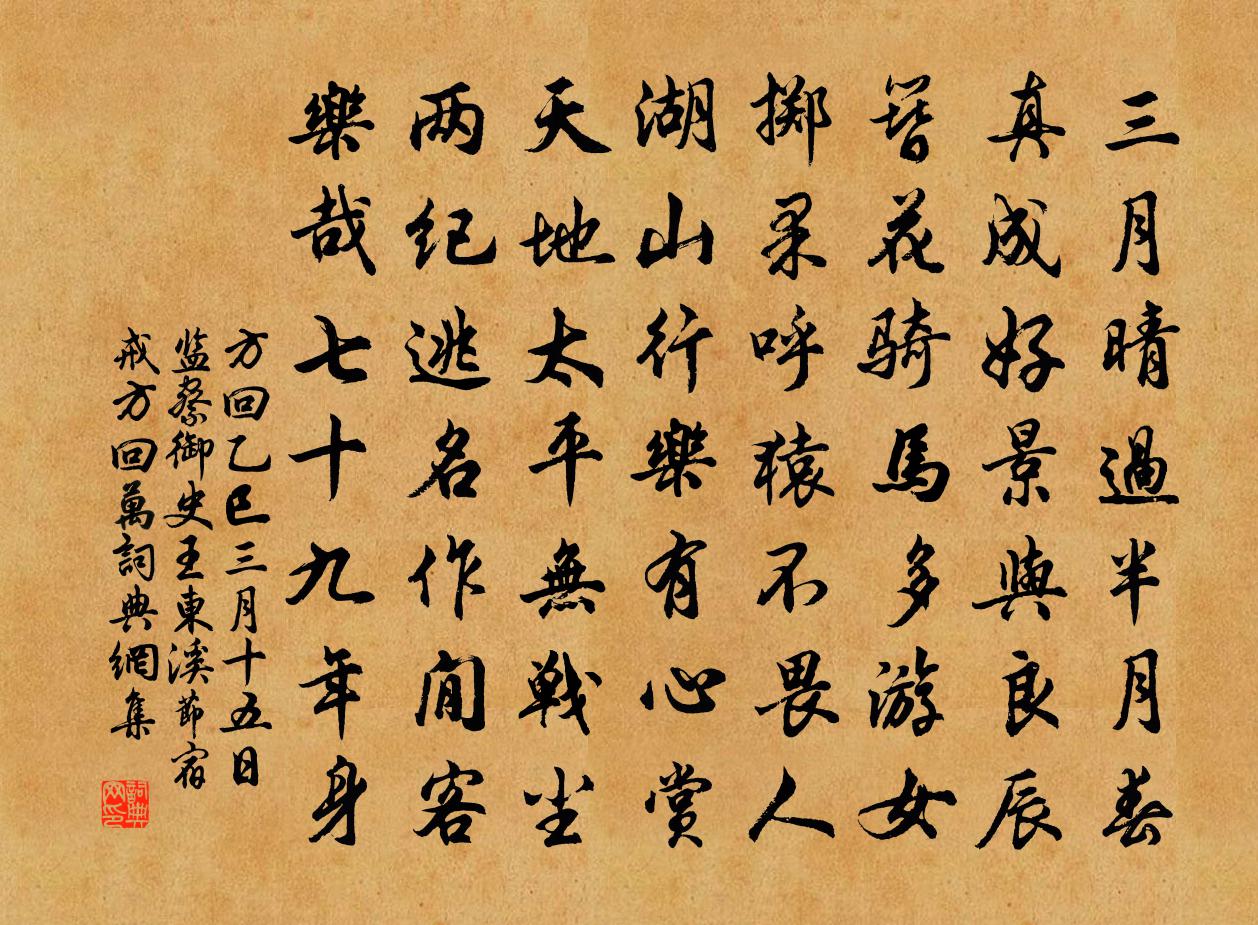 三月晴過半月春
真成好景與良辰
簪花騎馬多游女
擲果呼猿不畏人
湖山行樂有心賞
天地太平無戰尘
两纪逃名作閒客
樂哉七十九年身
方回乙巳三月十五日
监察御史王東溪節宿
戒方回萬詞典網集
詞典
网印